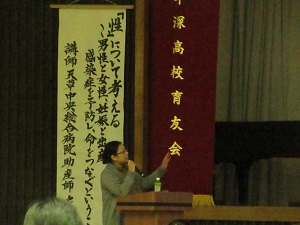 『性』について考える
〜男性と女性、妊娠と出産
感染症を予防し、命をつなぐという
講師 天草中央総合病院助産師
深高校育友会